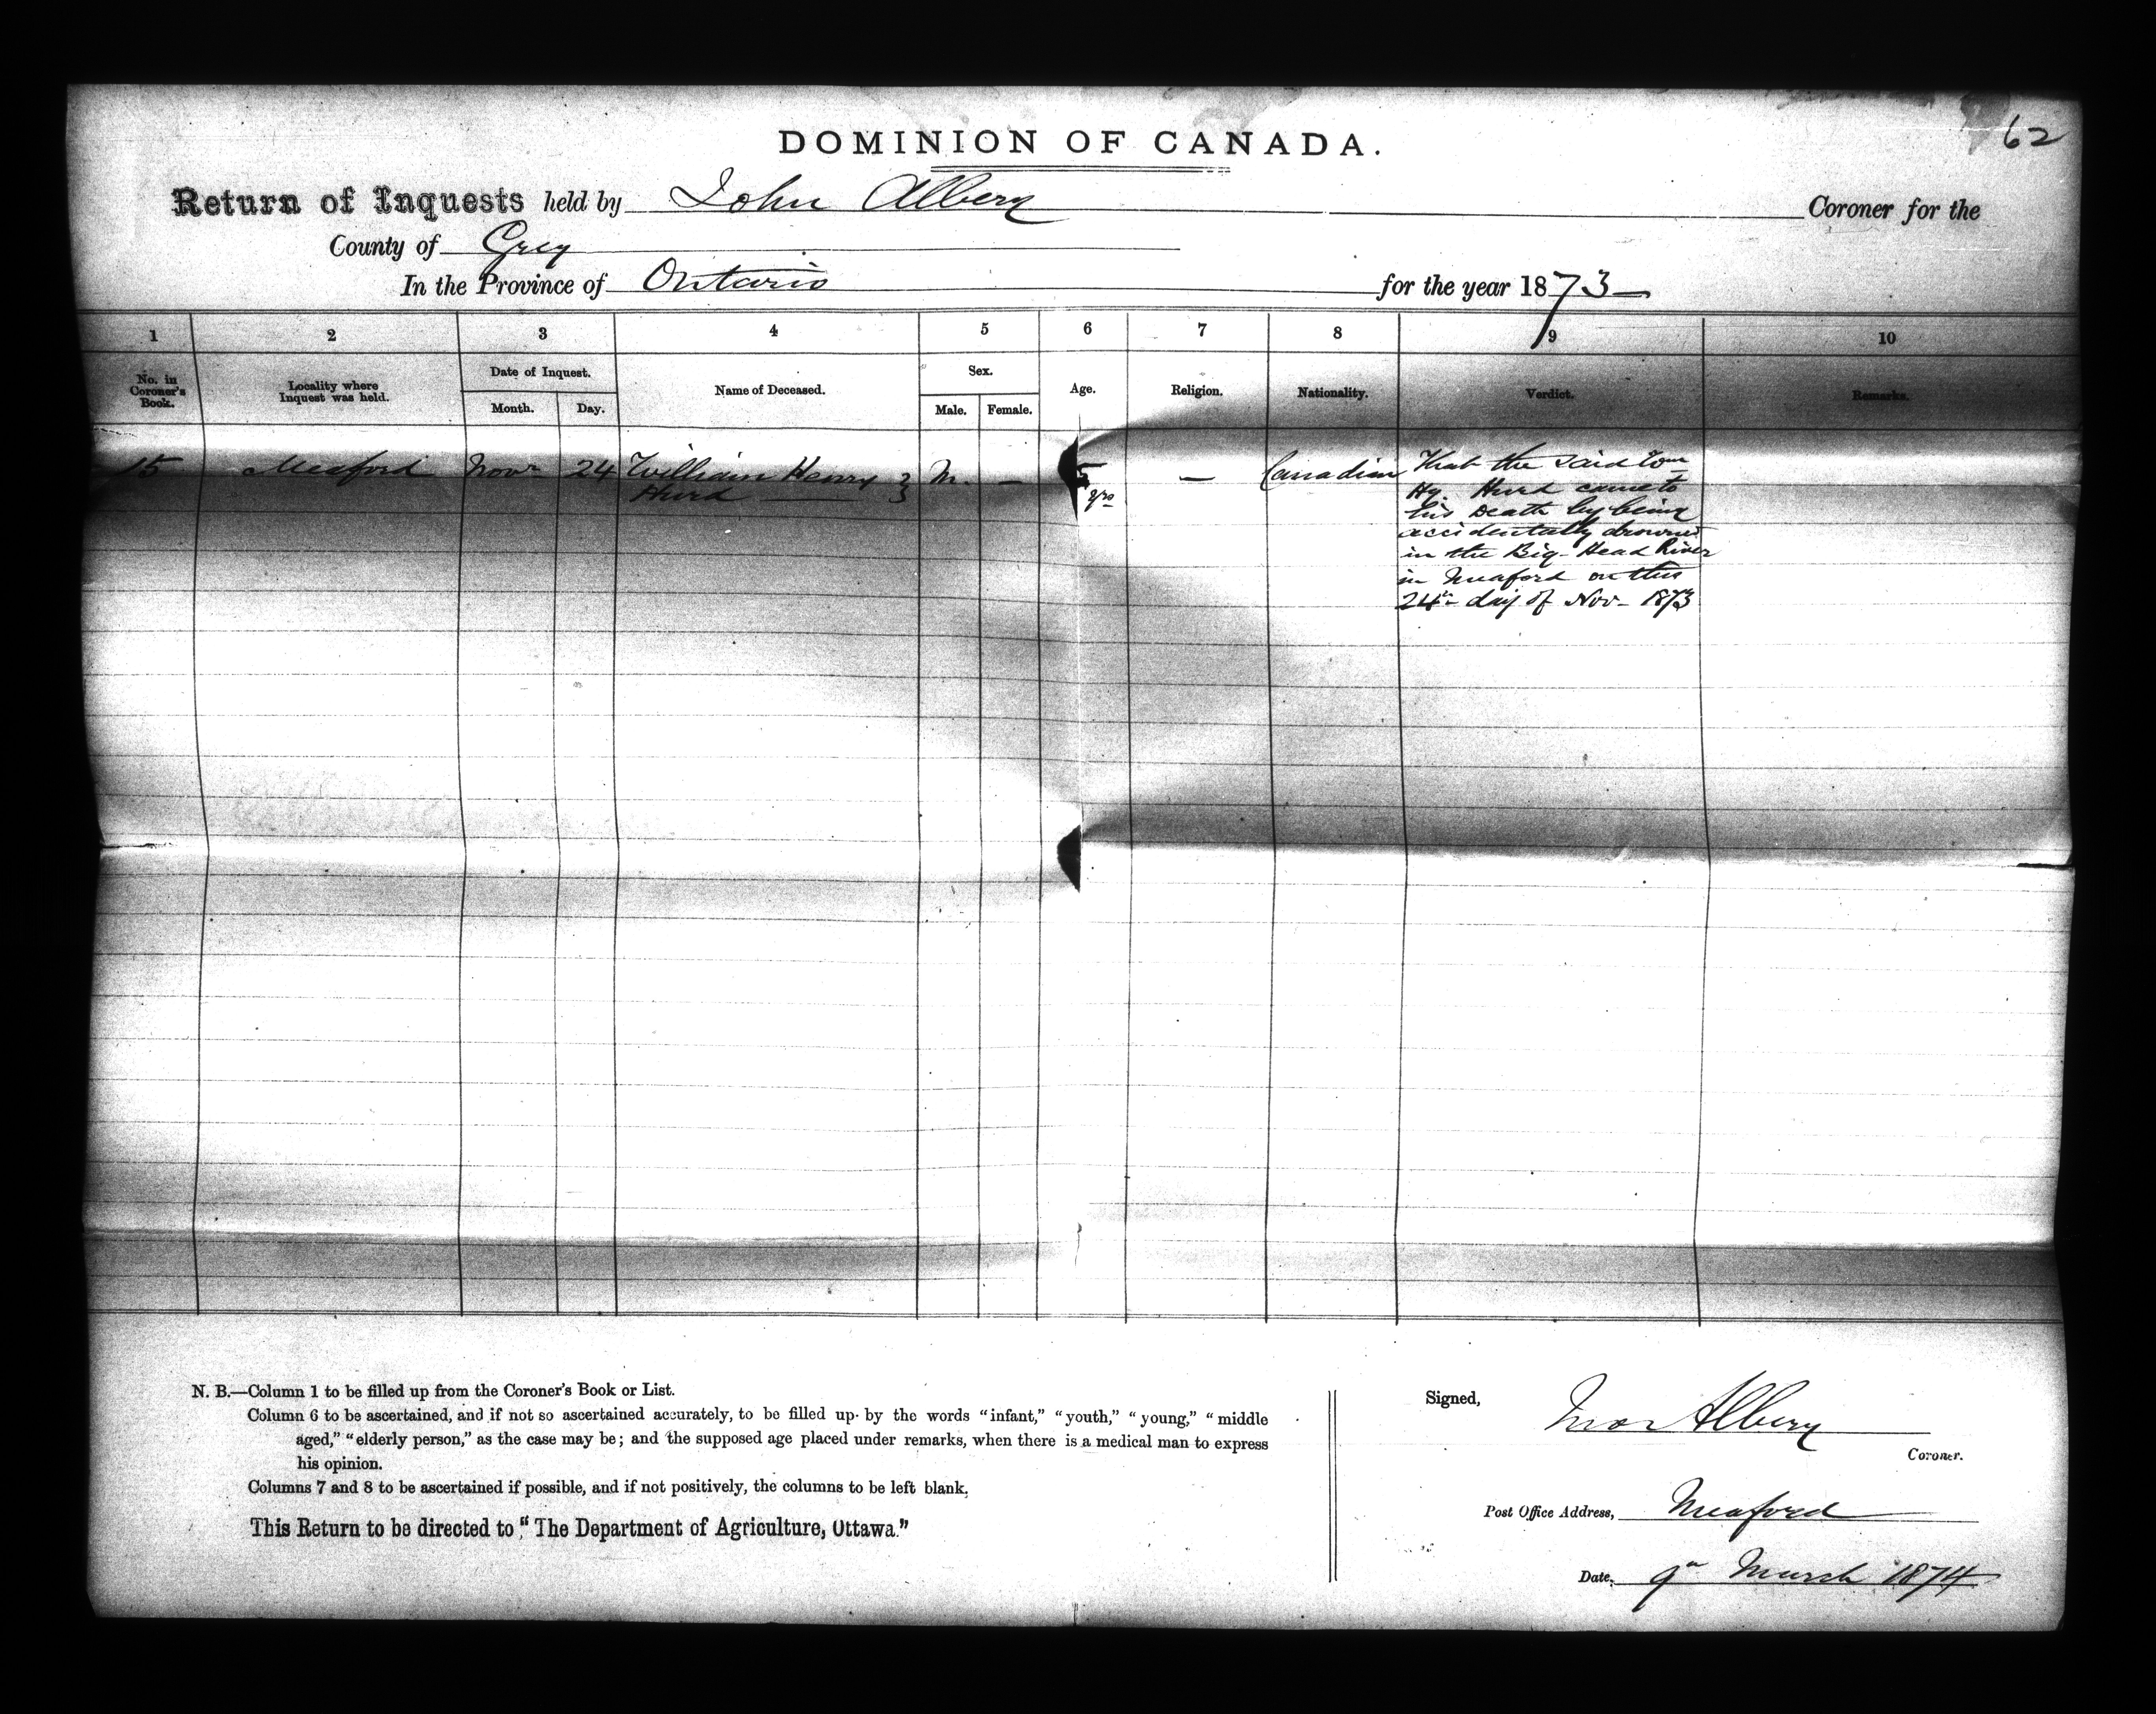 62
DOMINION OF CANADA.
Return of Inquests held by John Albery Coroner for the
County of Grey
In the Province of Ontario for the year 1873
1 2 3 4 5 6 7 8 9 10
No. in Coroner's Book. Locality where Inquest was held. Date of Inquest. Month. Day. Name of Deceased. Sex. Male. Female. Age. Religion. Nationality. Verdict. Remarks.
15 Meaford Novr 24 William Henry Hurd M. — 5 yrs — Canadian That the said Wm
Hy. Hurd came to
his Death by being
accidentally drowned
in the Big-Head River
in Meaford on this
24th day of Nov- 1873
N. B.—Column 1 to be filled up from the Coroner's Book or List.
Column 6 to be ascertained, and if not so ascertained accurately, to be filled up by the words "infant," "youth," "young," "middle
aged," "elderly person," as the case may be; and the supposed age placed under remarks, when there is a medical man to express
his opinion.
Columns 7 and 8 to be ascertained if possible, and if not positively, the columns to be left blank.
This Return to be directed to "The Department of Agriculture, Ottawa."
Signed, Jno Albery
Coroner.
Post Office Address, Meaford
Date, 9th March 1874